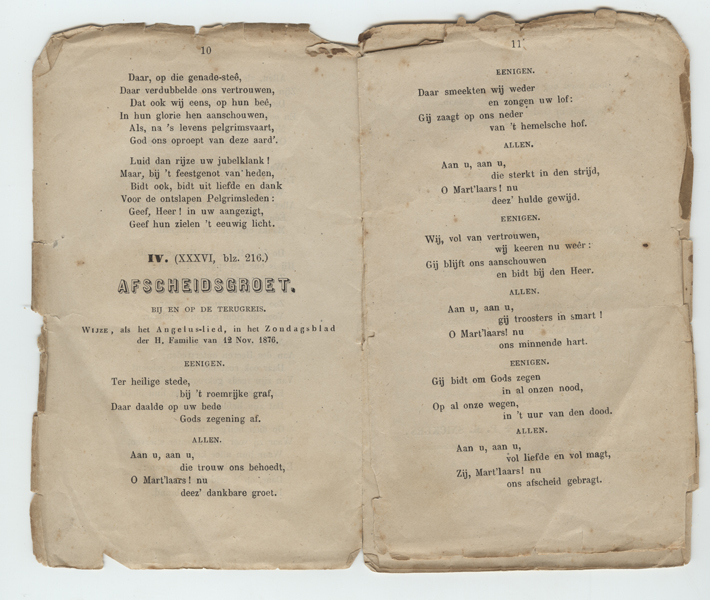 10
Daar, op die genade-steê,
Daar verdubbelde ons vertrouwen,
Dat ook wij eens, op hun beê,
In hun glorie hen aanschouwen,
Als, na 's levens pelgrimsvaart,
God ons oproept van deze aard'.
Luid dan rijze uw jubelklank!
Maar, bij 't feestgenot van heden,
Bidt ook, bidt uit liefde en dank
Voor de ontslapen Pelgrimsleden:
Geef, Heer! in uw aangezigt,
Geef hun zielen 't eeuwig licht.
IV. (XXXVI, blz. 216.)
AFSCHEIDSGROET.
BIJ EN OP DE TERUGREIS.
WIJZE, als het Angelus-lied, in het Zondagsblad
der H. Familie van 12 Nov. 1876.
EENIGEN.
Ter heilige stede,
bij 't roemrijke graf,
Daar daalde op uw bede
Gods zegening af.
ALLEN.
Aan u, aan u,
die trouw ons behoedt,
O Mart'laars! nu
deez' dankbare groet.
11
EENIGEN.
Daar smeekten wij weder
en zongen uw lof:
Gij zaagt op ons neder
van 't hemelsche hof.
ALLEN.
Aan u, aan u,
die sterkt in den strijd,
O Mart'laars! nu
deez' hulde gewijd.
EENIGEN.
Wij, vol van vertrouwen,
wij keeren nu weêr:
Gij blijft ons aanschouwen
en bidt bij den Heer.
ALLEN.
Aan u, aan u,
gij troosters in smart!
O Mart'laars! nu
ons minnende hart.
EENIGEN.
Gij bidt om Gods zegen
in al onzen nood,
Op al onze wegen,
in 't uur van den dood.
ALLEN.
Aan u, aan u,
vol liefde en vol magt,
Zij, Mart'laars! nu
ons afscheid gebragt.